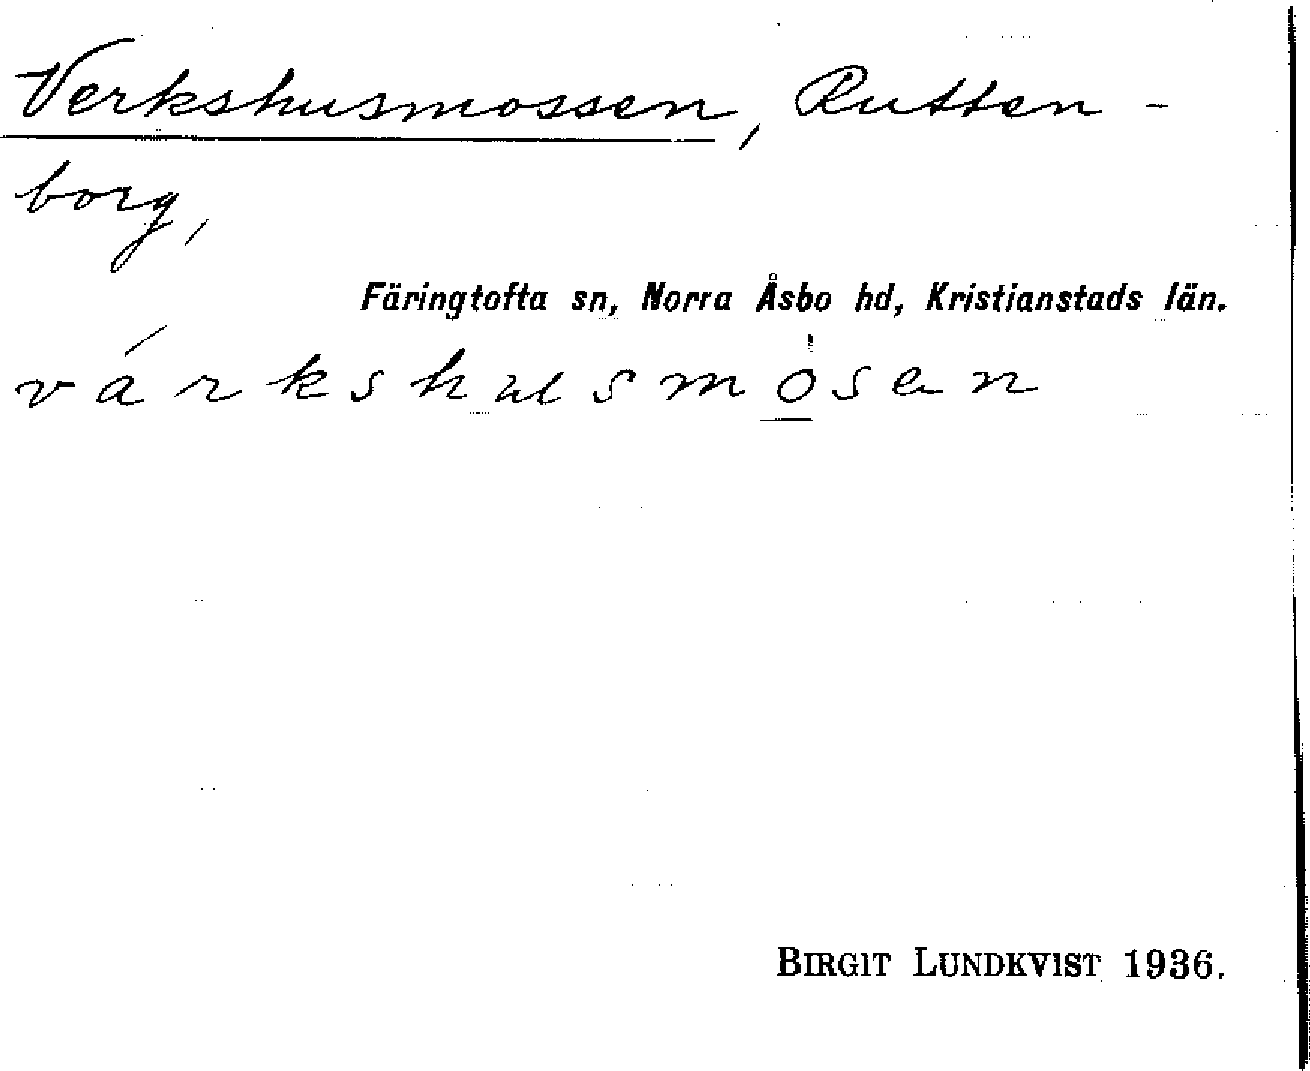 Verkshusmossen, Rutten-
borg,
Färingtofta sn, Norra Åsbo hd, Kristianstads län.
várkshusmosen
BIRGIT LUNDKVIST 1936.